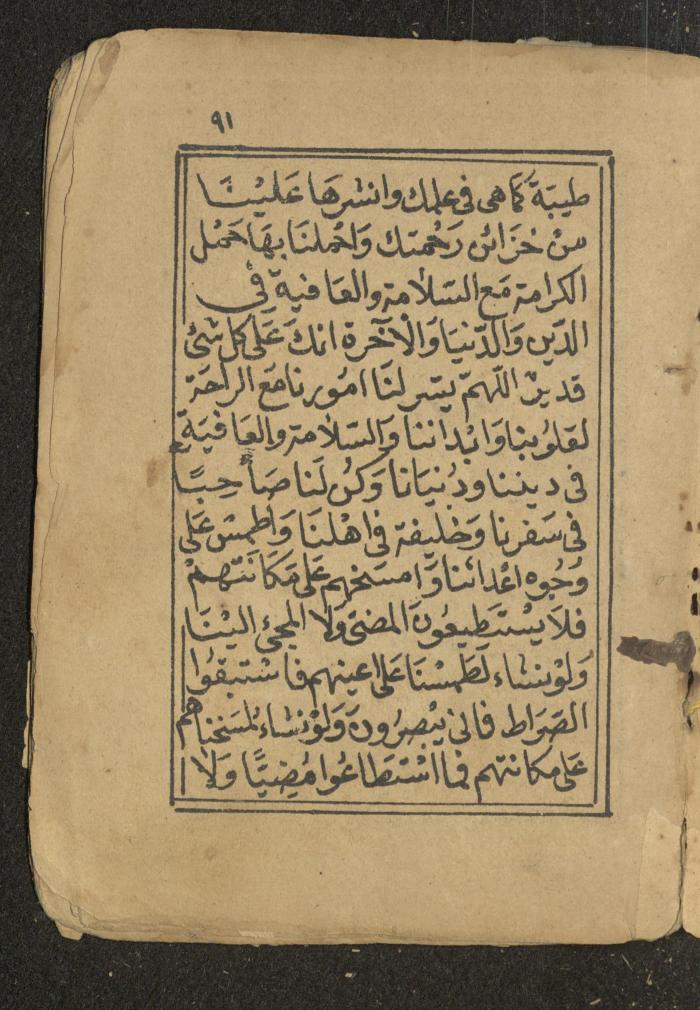 ٩١
طيبَةً كَمَا هى فى علمك وانشرهَا عَليْنَا
مِنْ خزَائن رَحْمتك وَاحْملنَا بهَا حَمْل
الكرامة مَع السّلامة والعَافية فِى
الدّين وَالدّنيَا وَالْآخرة انكَ عَلى كل شئ
قدير اللّهمّ يسّر لنَا امُورنا مَع الراحَة
لقلوُبنا وَابْداننا وَالسّلامة والعَافيَةِ
فى ديننا ودُنيَانا وَكن لَنا صَاحِبًا
فى سَفرنا وَخليفة فى اهْلنَا وَاطمِسْ عَلى
وُجُوه اعْدائنا وَامسَخهم عَلى مَكَانتهمْ
فلاَ يسْتَطيعُونَ المضىّ وَلا المجئ اليْنَا
وَلوْ نشاء لَطَمسْنَا عَلى اعينهم فاسْتبقُوا
الصّرَاط فانى يبْصرُونَ وَلوْ نشاءُ لمسَخنَاهم
عَلى مكانتهم فما اسْتطَاعُوا مُضِيًّا وَلا